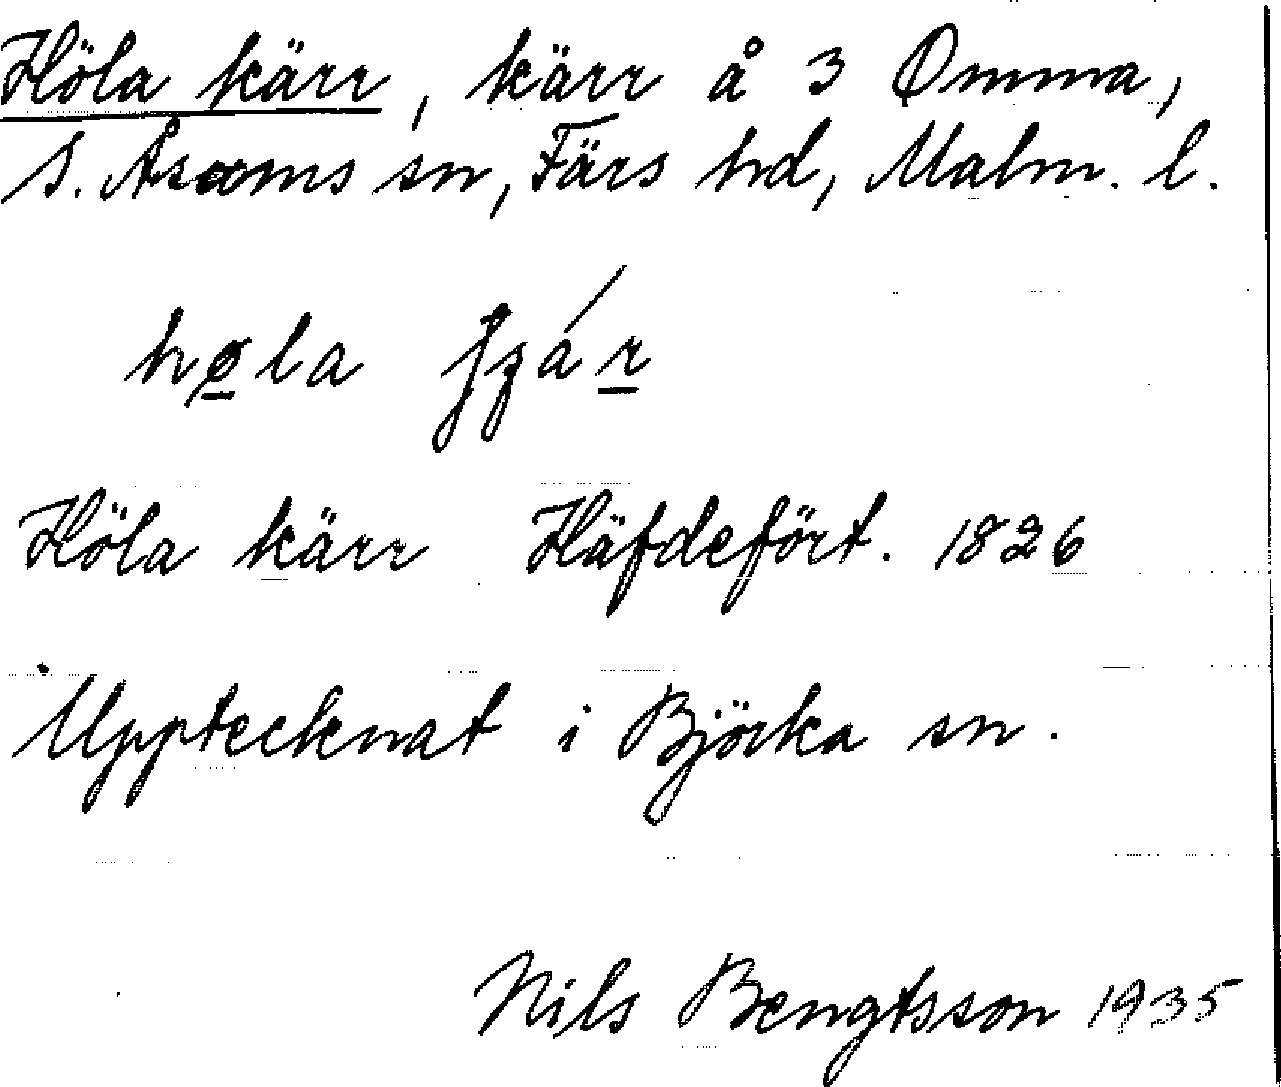 Höla kärr, kärr å 3 Omma,
S. Åsums sn, Färs hd, Malm. l.
hø̱la ʃʒáṟ
Höla kärr Häfdefört. 1826
Upptecknat i Björka sn.
Nils Bengtsson 1935